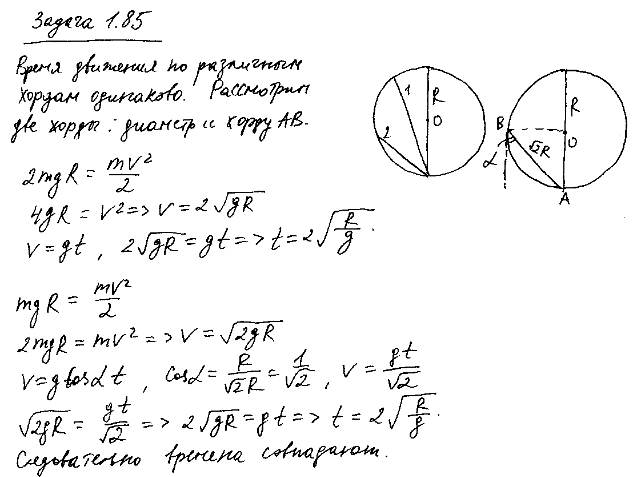 Задача 1.85
Время движения по различным
хордам одинаково. Рассмотрим
две хорды: диаметр и хорду AB.
2mgR = mv²/2
4gR = v² => v = 2√gR
v = gt, 2√gR = gt => t = 2√(R/g).
mgR = mv²/2
2mgR = mv² => v = √2gR
v = g cosα t, cosα = R/√2R = 1/√2, v = gt/√2
√2gR = gt/√2 => 2√gR = gt => t = 2√(R/g).
Следовательно времена совпадают.
1 R
2 O
R
B O
α √2R
A